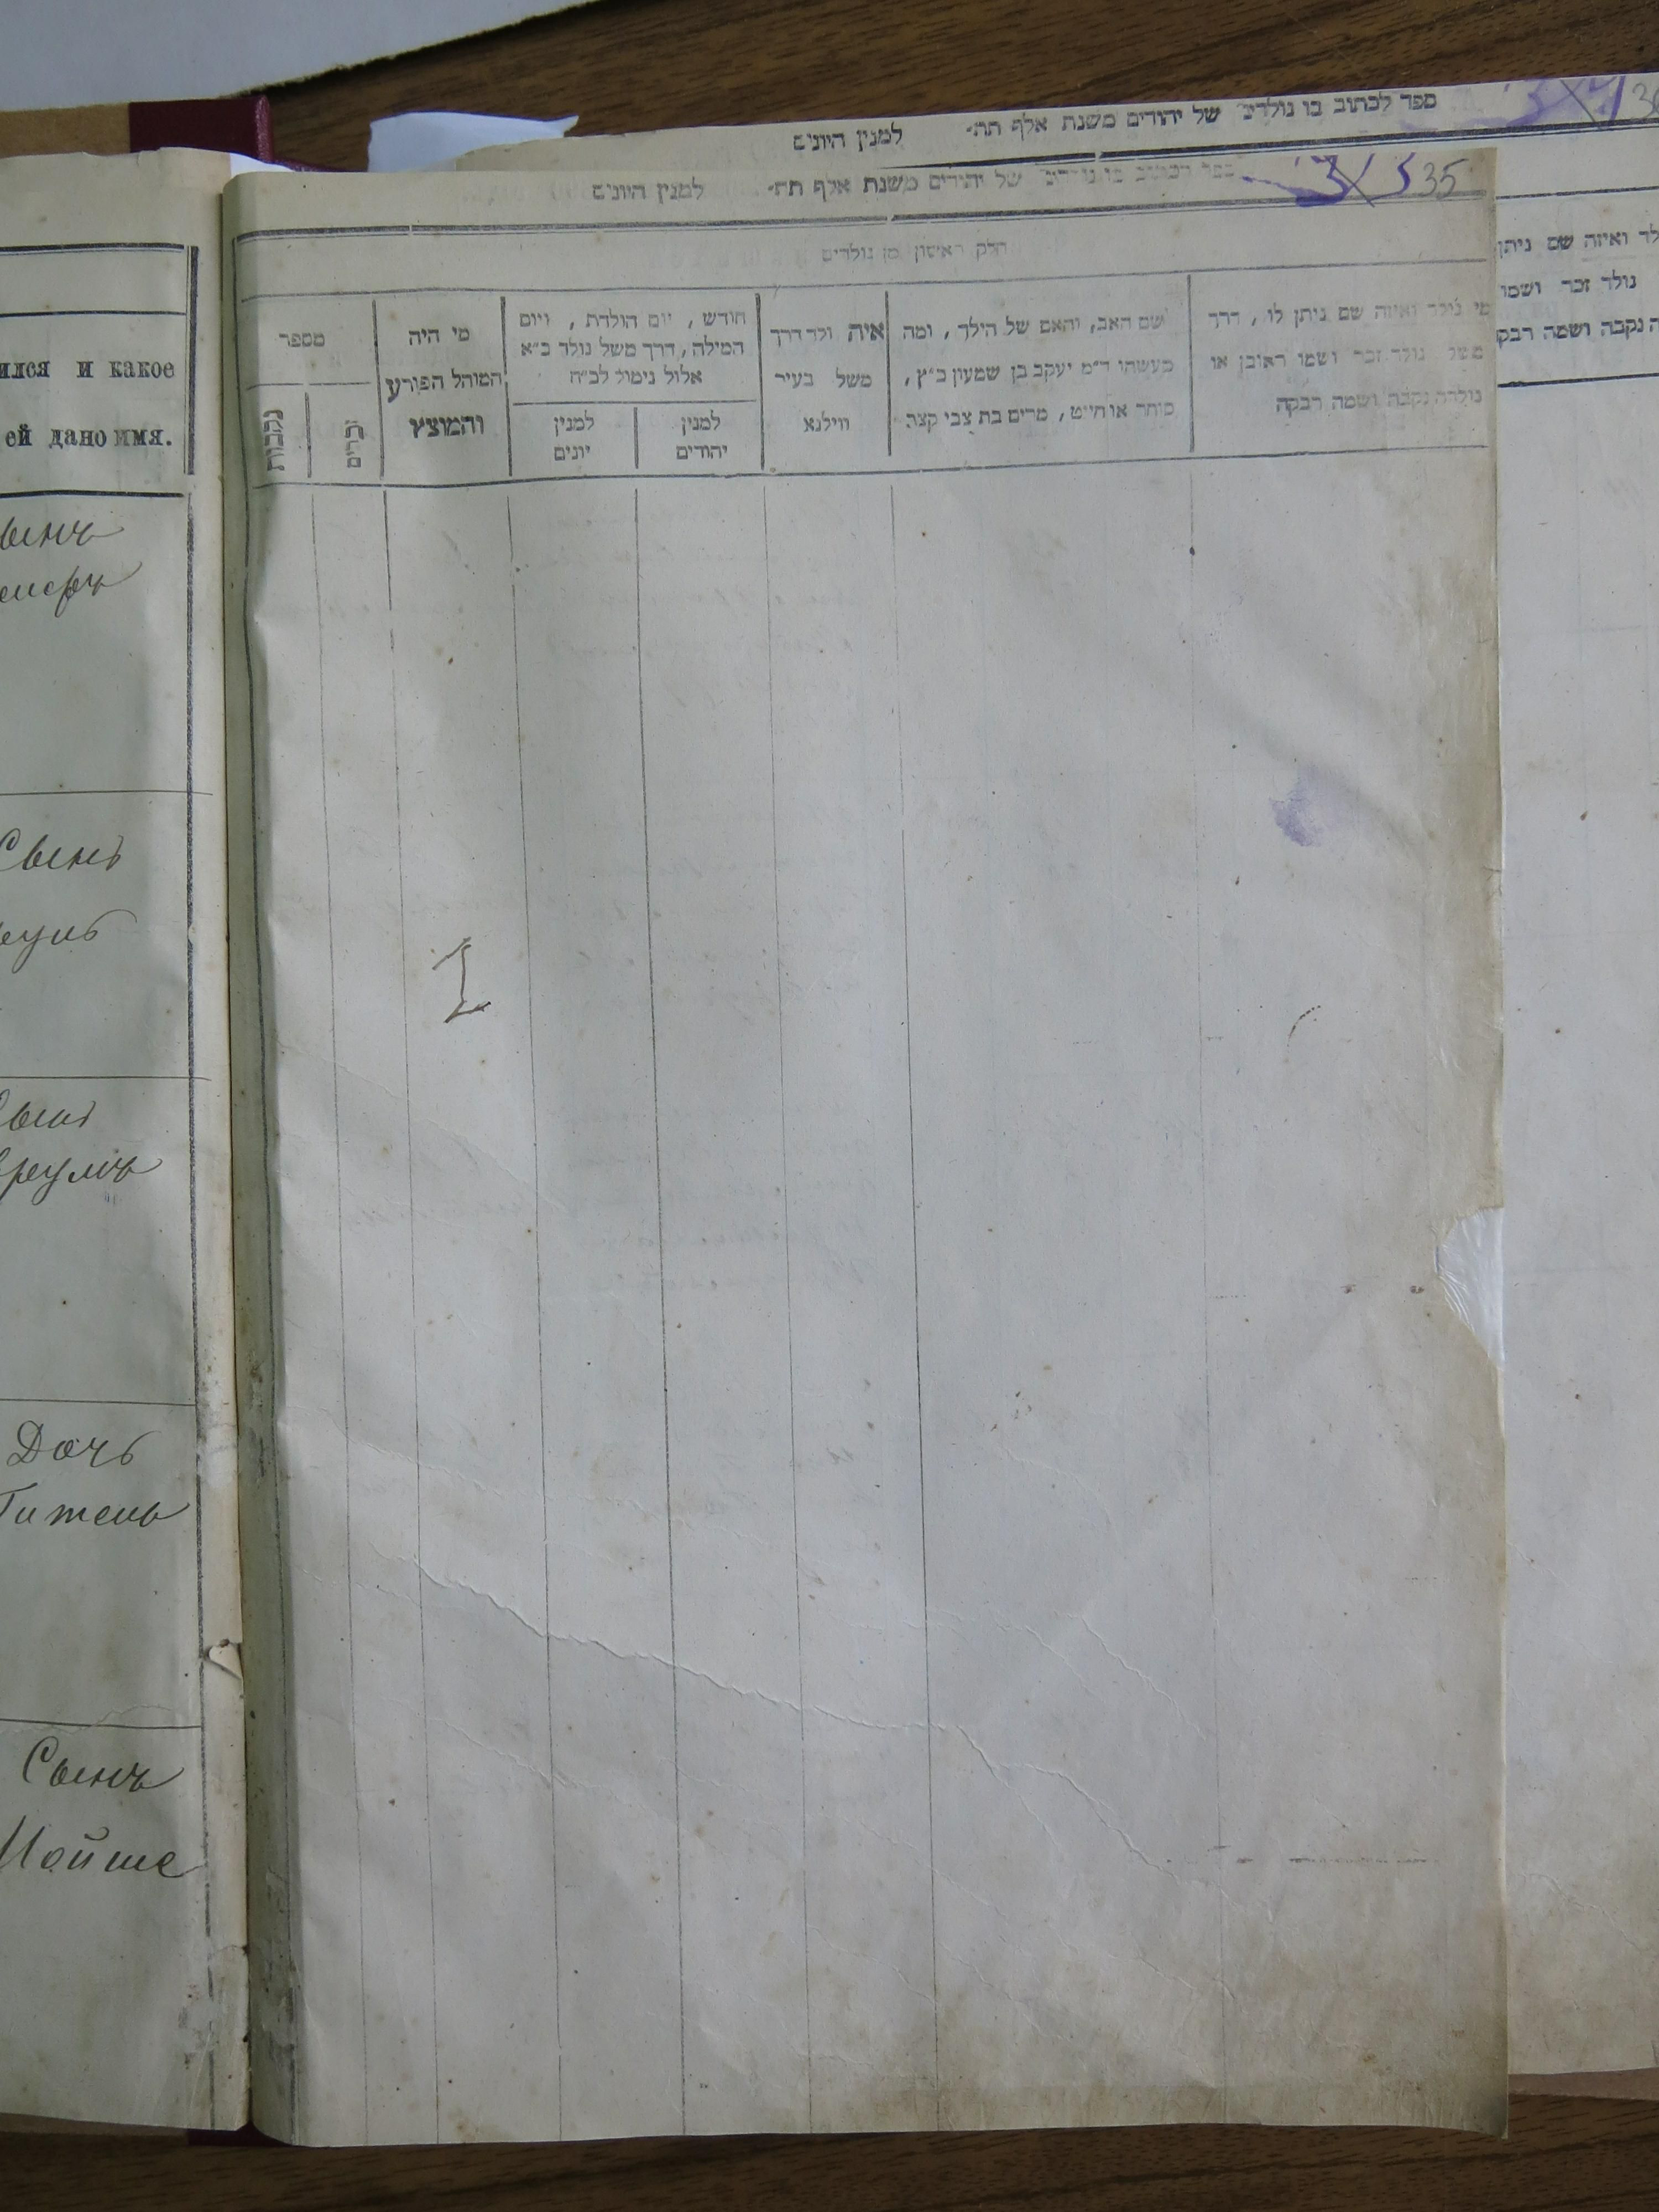 ספר לכתוב בו נולדים של יהודים משנת אלף תת- למנין היונים
של יהודים משנת אלף תת- למנין היונים
35
חלק ראשון מן נולדים
מי נולד ואיזה שם ניתן לו, דרך
משל נולד זכר ושמו ראובן או
נולדה נקבה ושמה רבקה
שם האב, והאם של הילד, ומה
מעשהו ד״מ יעקב בן שמעון כ״ץ,
סוחר או חייט, מרים בת צבי קצב
איה ולד דרך
משל בעיר
ווילנא
חודש, יום הולדת, ויום
המילה, דרך משל נולד כ״א
אלול נימול לכ״ח
למנין
יהודים
למנין
יונים
מי היה
המוהל הפורע
והמוצץ
מספר
זכרים
נקבות
1
ילד ואיזה שם ניתן
נולד זכר ושמו
ה נקבה ושמה רבק
ился и какое
ей дано имя.
Сынъ
Дочь
Гитель
Сынъ
Мойше